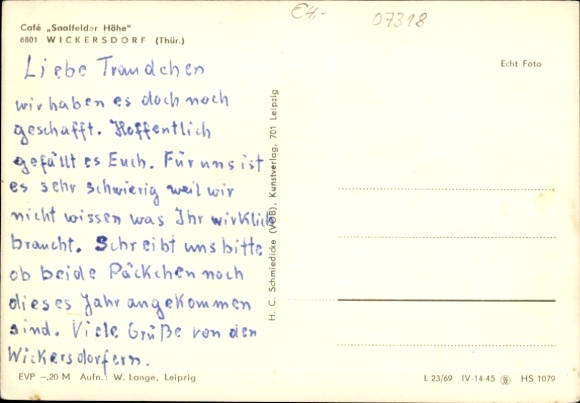 €4,-
07318
Café „Saalfelder Höhe"
6801 WICKERSDORF (Thür.)
Echt Foto
Liebe Traudchen
wir haben es doch noch
geschafft. Hoffentlich
gefällt es Euch. Für uns ist
es sehr schwierig weil wir
nicht wissen was Ihr wirklich
braucht. Schreibt uns bitte
ob beide Päckchen noch
dieses Jahr angekommen
sind. Viele Grüße von den
Wickersdorfern.
H. C. Schmiedicke (VOB), Kunstverlag, 701 Leipzig
EVP –,20 M Aufn.: W. Lange, Leipzig
L 23/69 IV-14-45 HS 1079